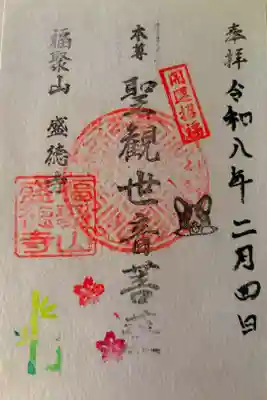 奉拝
令和八年二月四日
開運招福
本尊
聖観世音菩薩
福聚山 盛徳寺
福聚山
盛徳寺